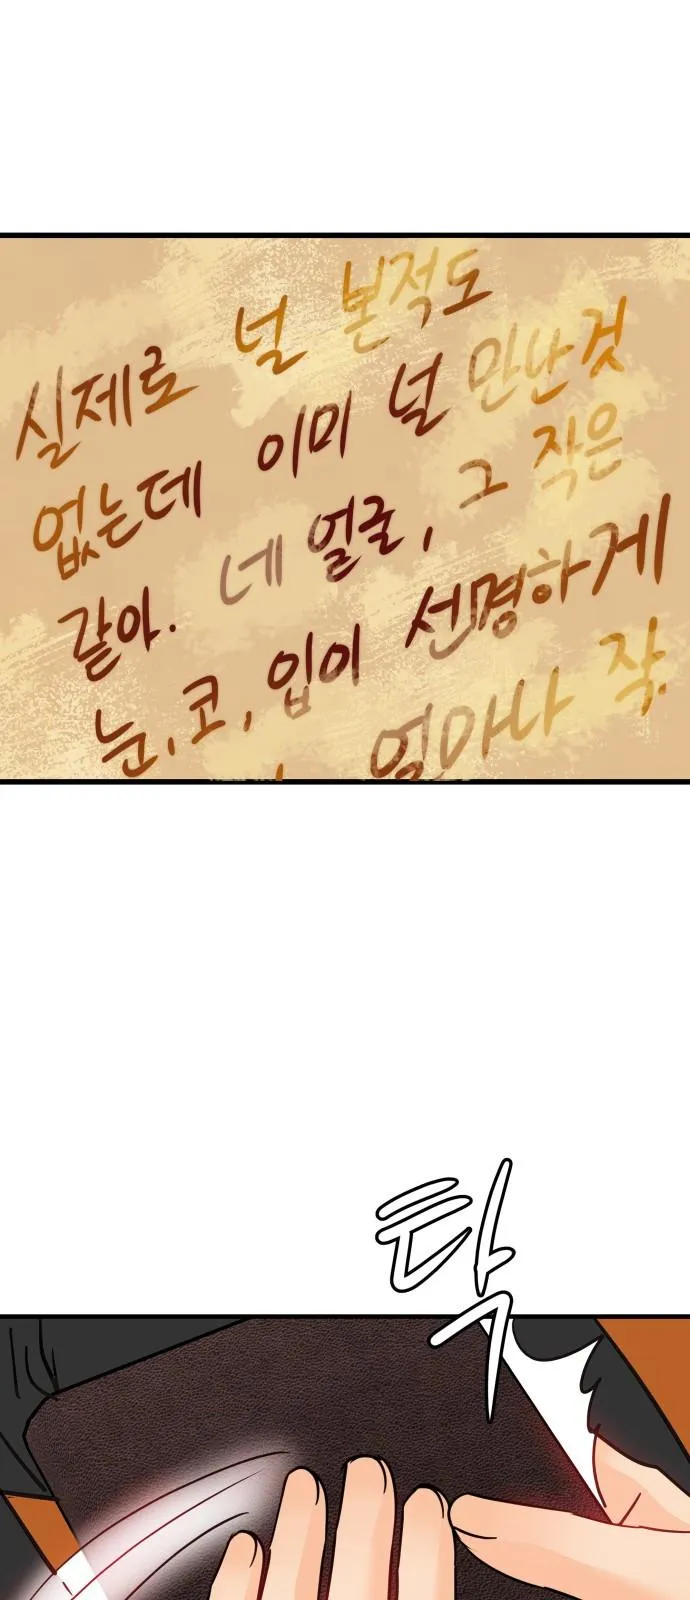 실제로 널 본적도
없는데 이미 널 만난것
같아. 네 얼굴, 그 작은
눈, 코, 입이 선명하게
얼마나 작
탁